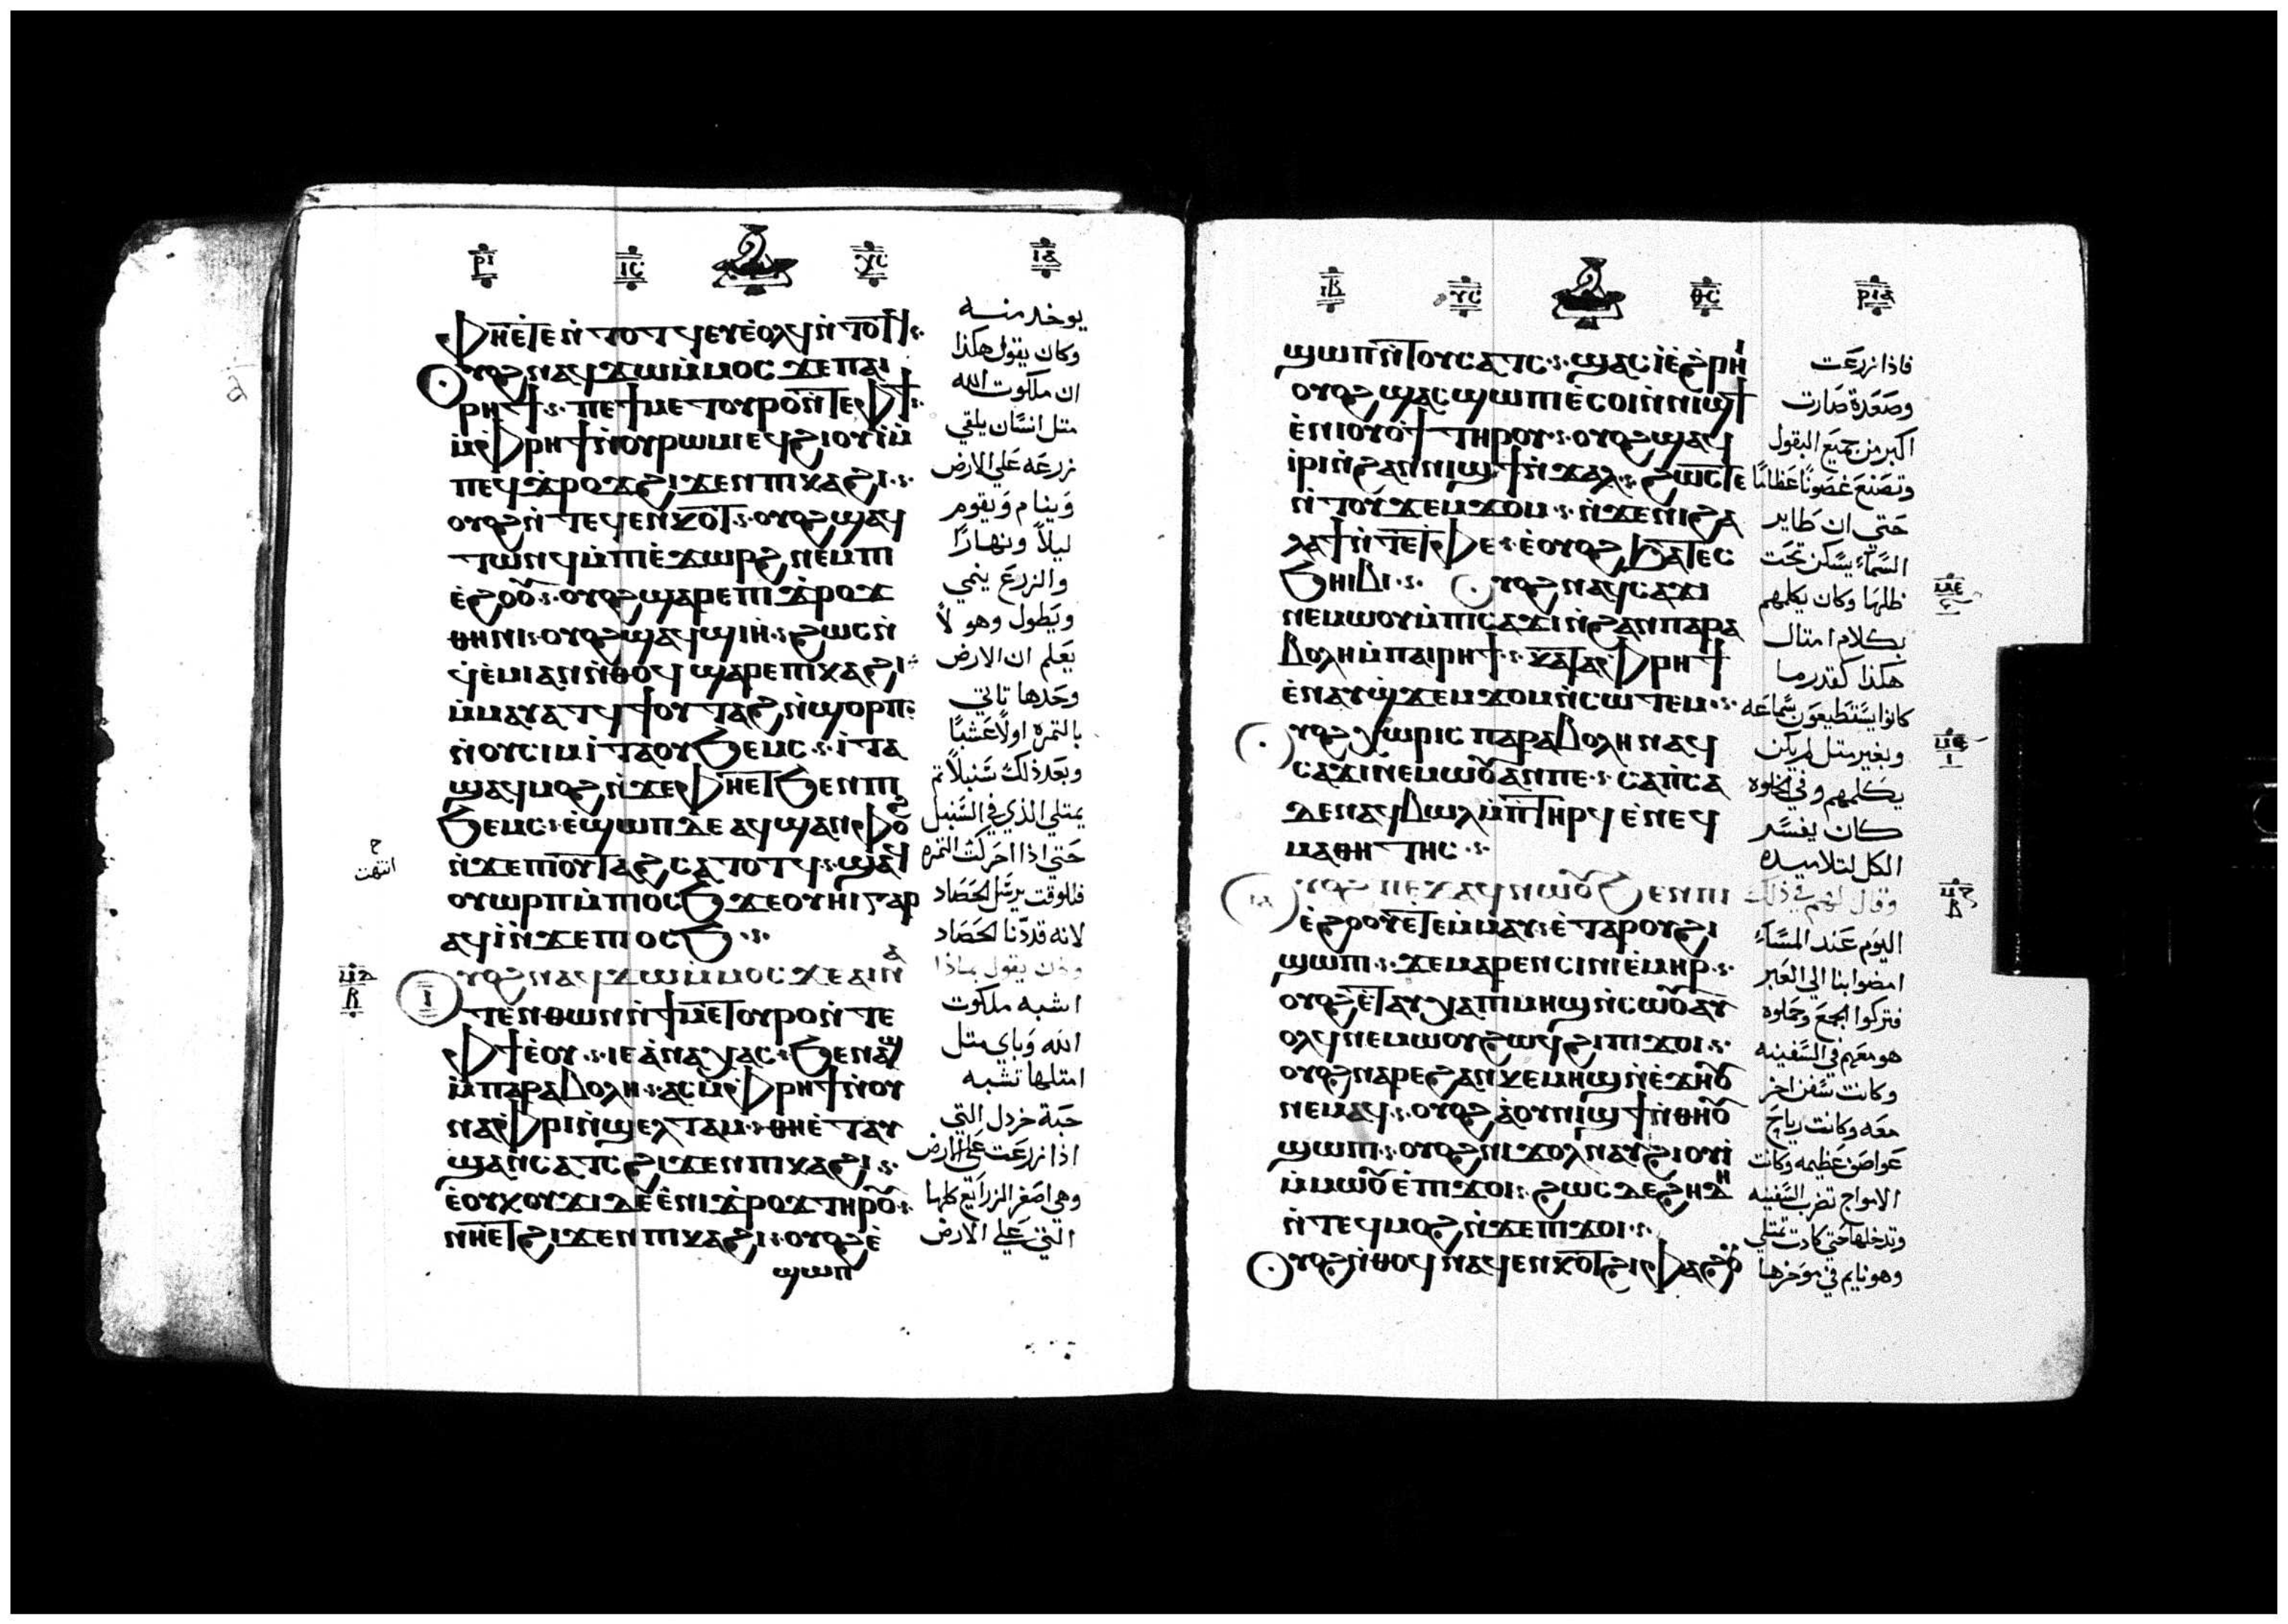 ⲣⲓ ⲓ︤ⲥ︥ ⲩ︤ⲥ︥ ⲓⲁ
ⲫⲏⲉ̀ⲧⲉⲛ̀ⲧⲟⲧϥⲉⲩⲉ̀ⲟⲗϥⲛ̀ⲧⲟⲧϥ
ⲟⲩⲟϩⲛⲁϥϫⲱⲙ̀ⲙⲟⲥϫⲉⲡⲁⲓ
ⲣⲏϯ ⲡⲉϯⲙⲉⲧⲟⲩⲣⲟⲛ̀ⲧⲉⲫϯ
ⲙ̀ⲫⲣⲏϯⲛ̀ⲟⲩⲣⲱⲙⲓⲉϥϩⲓⲟⲩⲓⲙ̀
ⲡⲉϥϫⲣⲟϫϩⲓϫⲉⲛⲡⲓⲕⲁϩⲓ
ⲟⲩⲟϩⲛ̀ⲧⲉϥⲉⲛⲕⲟⲧ ⲟⲩⲟϩϣⲁϥ
ⲧⲱⲛϥⲙ̀ⲡⲓⲉ̀ϫⲱⲣϩⲛⲉⲙⲡⲓ
ⲉ̀ϩⲟⲟⲩ ⲟⲩⲟϩϣⲁⲣⲉⲡⲓϫⲣⲟϫ
ⲑⲏⲛⲓ ⲟⲩⲟϩϣⲁϥϣⲓⲏ ϩⲱⲥⲛ̀
ϥⲉ̀ⲙⲓⲁⲛⲛ̀ⲑⲟϥϣⲁⲣⲉⲡⲓⲕⲁϩⲓ
ⲙ̀ⲙⲁⲩⲁⲧϥϯⲟⲩⲧⲁϩⲛ̀ϣⲟⲣⲡ
ⲛ̀ⲟⲩⲥⲓⲙⲓ̀ⲧⲁⲟⲩϧⲉⲙⲥ ⲓ̀ⲧⲁ
ϣⲁϥⲙⲟϩⲛ̀ϫⲉⲫⲏⲉⲧϧⲉⲛⲡⲓ
ϧⲉⲙⲥ ⲉ̀ϣⲱⲡⲇⲉⲁϥϣⲁⲛⲫⲟϩ
ⲛ̀ϫⲉⲡⲓⲟⲩⲧⲁϩⲥⲁⲧⲟⲧϥ ϣⲁϥ
ⲟⲩⲱⲣⲡⲙ̀ⲡⲓⲟⲥϧ ϫⲉⲟⲩⲏⲓⲅⲁⲣ
ⲁϥⲓ̀ⲛ̀ϫⲉⲡⲓⲟⲥϧ
ⲟⲩⲟϩⲛⲁϥϫⲱⲙ̀ⲙⲟⲥϫⲉⲁⲓⲛⲁ
ⲧⲉⲛⲑⲱⲛⲛ̀ϯⲙⲉⲧⲟⲩⲣⲟⲛ̀ⲧⲉ
ⲫϯⲉ̀ⲟⲩ ⲓⲉⲁ̀ⲛⲁⲭⲁⲥ ϧⲉⲛⲁϣ
ⲙ̀ⲡⲁⲣⲁⲃⲟⲗⲏ ⲁⲥⲙ̀ⲫⲣⲏϯⲛ̀ⲟⲩ
ⲛⲁⲫⲣⲓⲛ̀ϣⲉⲗⲧⲁⲙ ⲑⲏⲉ̀ⲧⲁⲩ
ϣⲁⲛⲥⲁⲧⲥϩⲓϫⲉⲛⲡⲓⲕⲁϩⲓ
ⲉ̀ⲟⲩⲕⲟⲩϫⲓⲇⲉⲉ̀ⲛⲓϫⲣⲟϫⲧⲏⲣⲟⲩ
ⲛⲏⲉⲧϩⲓϫⲉⲛⲡⲓⲕⲁϩⲓ ⲟⲩⲟϩⲉ̀
ϣⲱⲡ
يوخد منه
وكان يقول هكذا
ان ملكوت الله
متل انسان يلقي
زرعه علي الارض
وينام ويقوم
ليلاً ونهارًا
والزرع ينمي
ويطول وهو لا
يعلم ان الارض
وحدها تاتي
بالتمره اولاً عشبًا
وبعد ذلك سنبلاً تم
يمتلي الذي في السنبل
حتي اذا ادركت التمره
فللوقت يرسل الحصاد
لانه قد دنا الحصاد
وكان يقول بماذا
اشبه ملكوت
الله وباي متل
امتلها تشبه
حبة خردل التي
اذا زرعت علي الارض
وهي اصغر الزراريع كلها
التي علي الارض
انتهت
ⲙⲇ
ⲃ
ⲓⲃ ⲩ︤ⲥ︥ ⲑ︤ⲥ︥ ⲣⲓⲁ
ϣⲱⲡⲛ̀ⲧⲟⲩⲥⲁⲧⲥ ϣⲁⲥⲓ̀ⲉ̀ϩⲣⲏⲓ
ⲟⲩⲟϩϣⲁⲥϣⲱⲡⲓⲉⲥⲟⲓⲛ̀ⲛⲓϣϯ
ⲉ̀ⲛⲓⲟⲩⲟϯⲧⲏⲣⲟⲩ ⲟⲩⲟϩϣⲁⲥ
ⲓⲣⲓⲛ̀ϩⲁⲛⲛⲓϣϯⲛ̀ϫⲁⲗ ϩⲱⲥⲧⲉ
ⲛ̀ⲧⲟⲩϫⲉⲙϫⲟⲙ ⲛ̀ϫⲉⲛⲓϩⲁ
ⲗⲁϯⲛ̀ⲧⲉⲧⲫⲉ ⲉ̀ⲟⲩⲟϩϧⲁⲧⲉⲥ
ϧⲏⲓⲃⲓ ⲟⲩⲟϩⲛⲁϥⲥⲁϫⲓ
ⲛⲉⲙⲱⲟⲩⲙ̀ⲡⲓⲥⲁϫⲓⲛ̀ϩⲁⲛⲡⲁⲣⲁ
ⲃⲟⲗⲏⲙ̀ⲡⲁⲓⲣⲏϯ ⲕⲁⲧⲁⲫⲣⲏϯ
ⲉ̀ⲛⲁⲩϣϫⲉⲙϫⲟⲙⲛ̀ⲥⲱⲧⲉⲙ
ⲟⲩⲟϩⲭⲱⲣⲓⲥⲡⲁⲣⲁⲃⲟⲗⲏⲛⲁϥ
ⲥⲁϫⲓⲛⲉⲙⲱⲟⲩⲁⲛⲡⲉ ⲥⲁⲡ̀ⲥⲁ
ⲇⲉⲛⲁϥⲃⲱⲗⲙ̀ⲡⲧⲏⲣϥⲉ̀ⲛⲉϥ
ⲙⲁⲑⲏⲧⲏⲥ
ⲟⲩⲟϩⲡⲉϫⲁϥⲛⲱⲟⲩϧⲉⲛⲡⲓ
ⲉ̀ϩⲟⲟⲩⲉ̀ⲧⲉⲙ̀ⲙⲁⲩ ⲉ̀ⲧⲁⲣⲟⲩϩⲓ
ϣⲱⲡⲓ ϫⲉⲙⲁⲣⲉⲛⲥⲓⲛⲓⲉ̀ⲙⲏⲣ
ⲟⲩⲟϩⲉ̀ⲧⲁⲩⲭⲁⲡⲓⲙⲏϣⲛ̀ⲥⲱⲟⲩⲁⲩ
ⲟⲗϥⲛⲉⲙⲱⲟⲩϩⲱϥϩⲓⲡⲓϫⲟⲓ
ⲟⲩⲟϩⲛⲁⲣⲉϩⲁⲛⲕⲉⲙⲏϣⲛ̀ⲉ̀ϫⲏⲟⲩ
ⲛⲉⲙⲁϥ ⲟⲩⲟϩⲁ̀ⲟⲩⲛⲓϣϯⲛ̀ⲑⲏⲟⲩ
ϣⲱⲡⲓ ⲟⲩⲟϩⲛⲓϫⲟⲗⲛⲁⲩϩⲓⲟⲩⲓ̀
ⲙ̀ⲙⲱⲟⲩⲉ̀ⲡⲓϫⲟⲓ ϩⲱⲥⲇⲉϩⲏⲇⲏ
ⲛ̀ⲧⲉϥⲙⲟϩⲛ̀ϫⲉⲡⲓϫⲟⲓ
ⲟⲩⲟϩⲛ̀ⲑⲟϥⲛⲁϥⲉⲛⲕⲟⲧϩⲓⲫⲁϩⲟⲩ
فاذا زرعت
وصعدة صارت
اكبر من جميع البقول
وتصنع غصونًا عظامًا
حتى ان طاير
السماء يسكن تحت
ظلها وكان يكلمهم
بكلام امتال
هكذا كقدر ما
كانوا يستطيعون سماعه
وبغير متل لم يكن
يكلمهم وفي الخلوه
كان يفسر
الكل لتلاميده
وقال لهم في ذلك
اليوم عند المساء
امضوا بنا الي العبر
فتركوا الجمع وحملوه
هو معهم في السفينه
وكانت سفن اخر
معه وكانت رياح
عواصف عظيمه وكانت
الامواج تضرب السفينه
وتدخلها حتي كادت تمتلي
وهو نايم في موخرها
ⲙⲉ
ⲙⲋ
ⲓ
ⲙⲍ
ⲃ